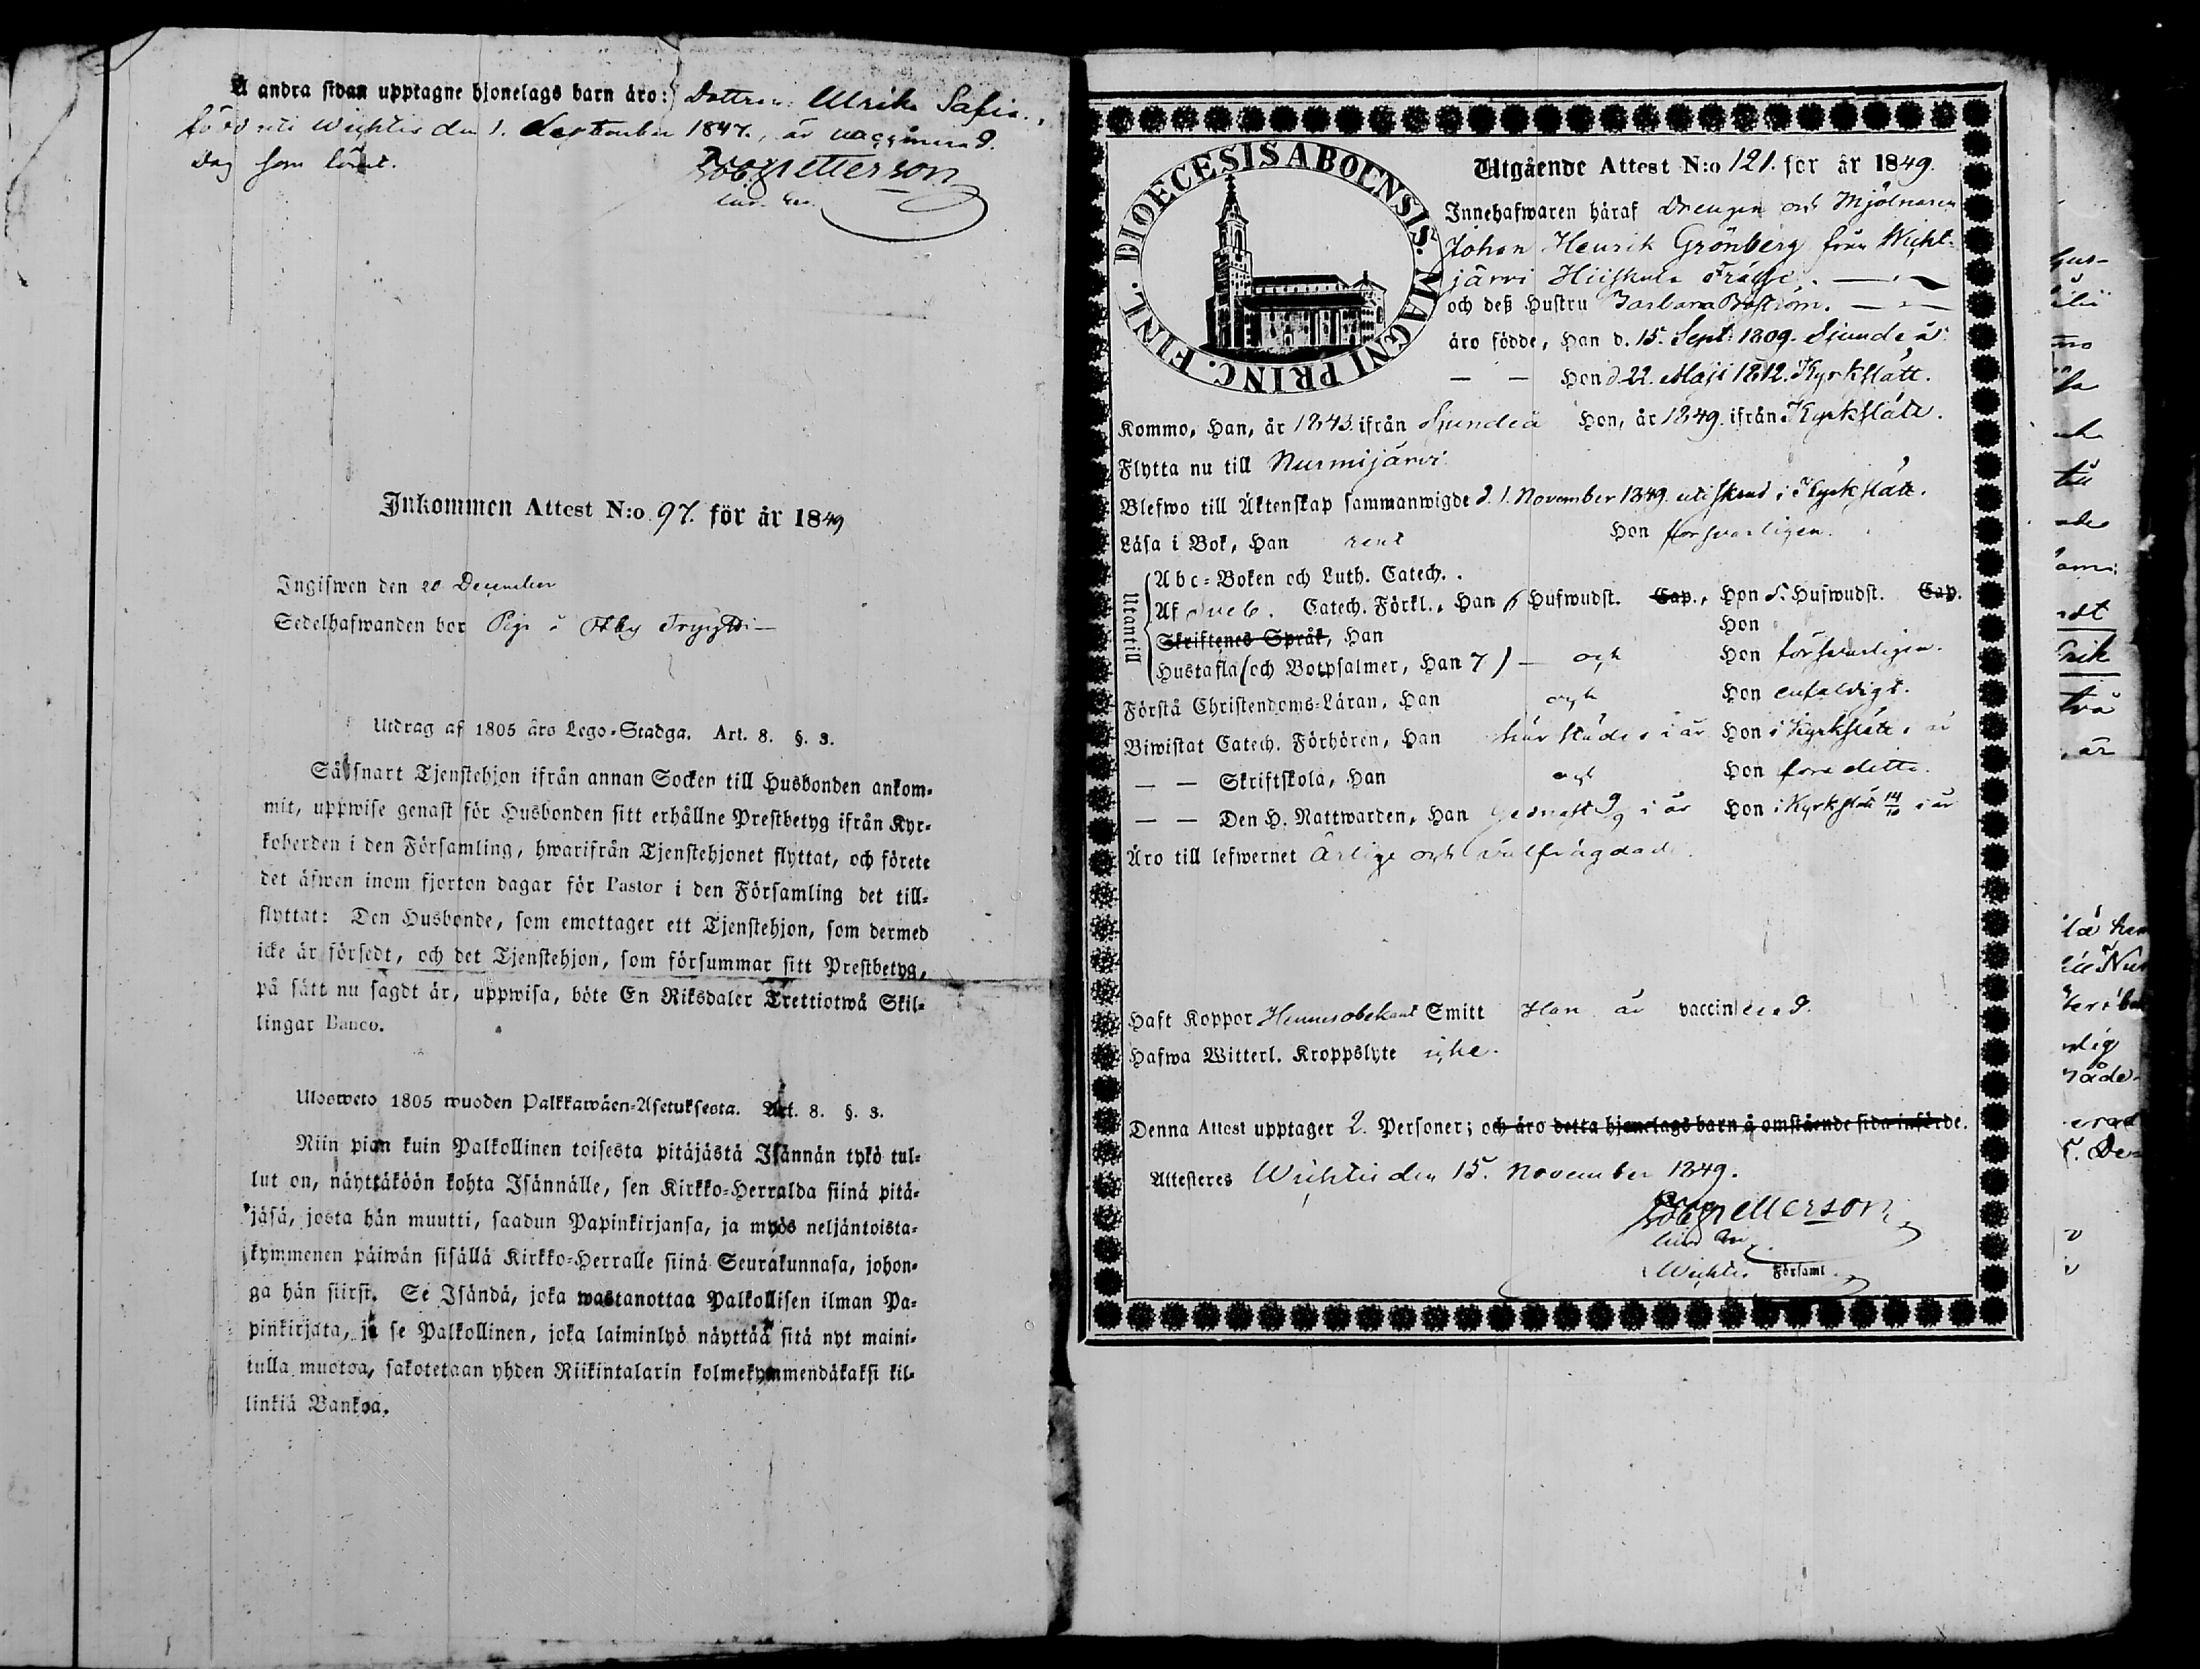 Å andra sidan upptagne hjonelags barn äro: Dottren Ulrika Sofia.,
född uti Wichtis den 1. September 1847., är vaccinerad.
Dag som förut.
Petterson
Inkommen Attest N:o 97. för år 1849
Ingifwen den 20 December
Sedelhafwanden bor
Utdrag af 1805 års Lego-Stadga. Art. 8. §. 3.
Så snart Tjenstehjon ifrån annan Socken till Husbonden ankom-
mit, uppwise genast för Husbonden sitt erhållne Prestbetyg ifrån Kyr-
koherden i den Församling, hwarifrån Tjenstehjonet flyttat, och förete
det äfwen inom fjorton dagar för Pastor i den Församling det till-
flyttat: Den Husbonde, som emottager ett Tjenstehjon, som dermed
icke är försedt, och det Tjenstehjon, som försummar sitt Prestbetyg,
på sätt nu sagdt är, uppwisa, böte En Riksdaler Trettiotwå Skil-
lingar Banco.
Ulosweto 1805 wuoden Palkkawäen-Asetuksesta. Art. 8. §. 3.
Niin pian kuin Palkollinen toisesta pitäjästä Isännän tykö tul-
lut on, näyttäköön kohta Isännälle, sen Kirkko-Herralda siinä pitä-
jäsä, josta hän muutti, saadun Papinkirjansa, ja myös neljäntoista-
kymmenen päiwän sisällä Kirkko-Herralle siinä Seurakunnasa, johon-
ga hän siirsi. Se Isändä, joka wastanottaa Palkollisen ilman Pa-
pinkirjata, ja se Palkollinen, joka laiminlyö näyttää sitä nyt maini-
tulla muotoa, sakotetaan yhden Riikintalarin kolmekymmendäkaksi kil-
linkiä Bankoa.
DIOECESIS ABOENSIS. MAGNI PRINC. FINL.
Utgående Attest N:o 121. för år 1849.
Innehafwaren häraf Drengen och Mjölnaren
Johan Henrik Grönberg från Wicht-
järvi Hiiskula
och deß Hustru Barbara Boström.
äro födde, Han d. 15. Sept. 1809. Sjundeå
— — Hon d. 22. Maji 1812. Kyrkslätt.
Kommo, Han, år 1843. ifrån Sjundeå Hon, år 1849. ifrån Kyrkslätt.
Flytta nu till Nurmijärvi
Blefwo till Äktenskap sammanwigde d. 1. November 1849. uti Kyrkslätt.
Läsa i Bok, Han rent Hon försvarligen.
Utantill
Abc-Boken och Luth. Catech. .
Af Catech. Förkl., Han 6 Hufwudst. Cap., Hon 5. Hufwudst. Cap.
Skriftenes Språk, Han Hon
Hustafla (och Botpsalmer, Han 7) — och Hon försvarligen.
Förstå Christendoms-Läran, Han och Hon enfaldigt.
Biwistat Catech. Förhören, Han härstädes i år Hon i Kyrkslätt i år
— — Skriftskola, Han och Hon före detta.
— — Den H. Nattwarden, Han i år Hon i Kyrkslätt 14/10 i år
Äro till lefwernet ärlige och välfrägdade.
Haft Koppor Hennes obekant Smitt Han är vaccinerad.
Hafwa Witterl. Kroppslyte icke.
Denna Attest upptager 2. Personer; och äro detta hjonelags barn å omstående sida införde.
Attesteres Wichtis den 15. November 1849.
Petterson
Wichtis Församl.